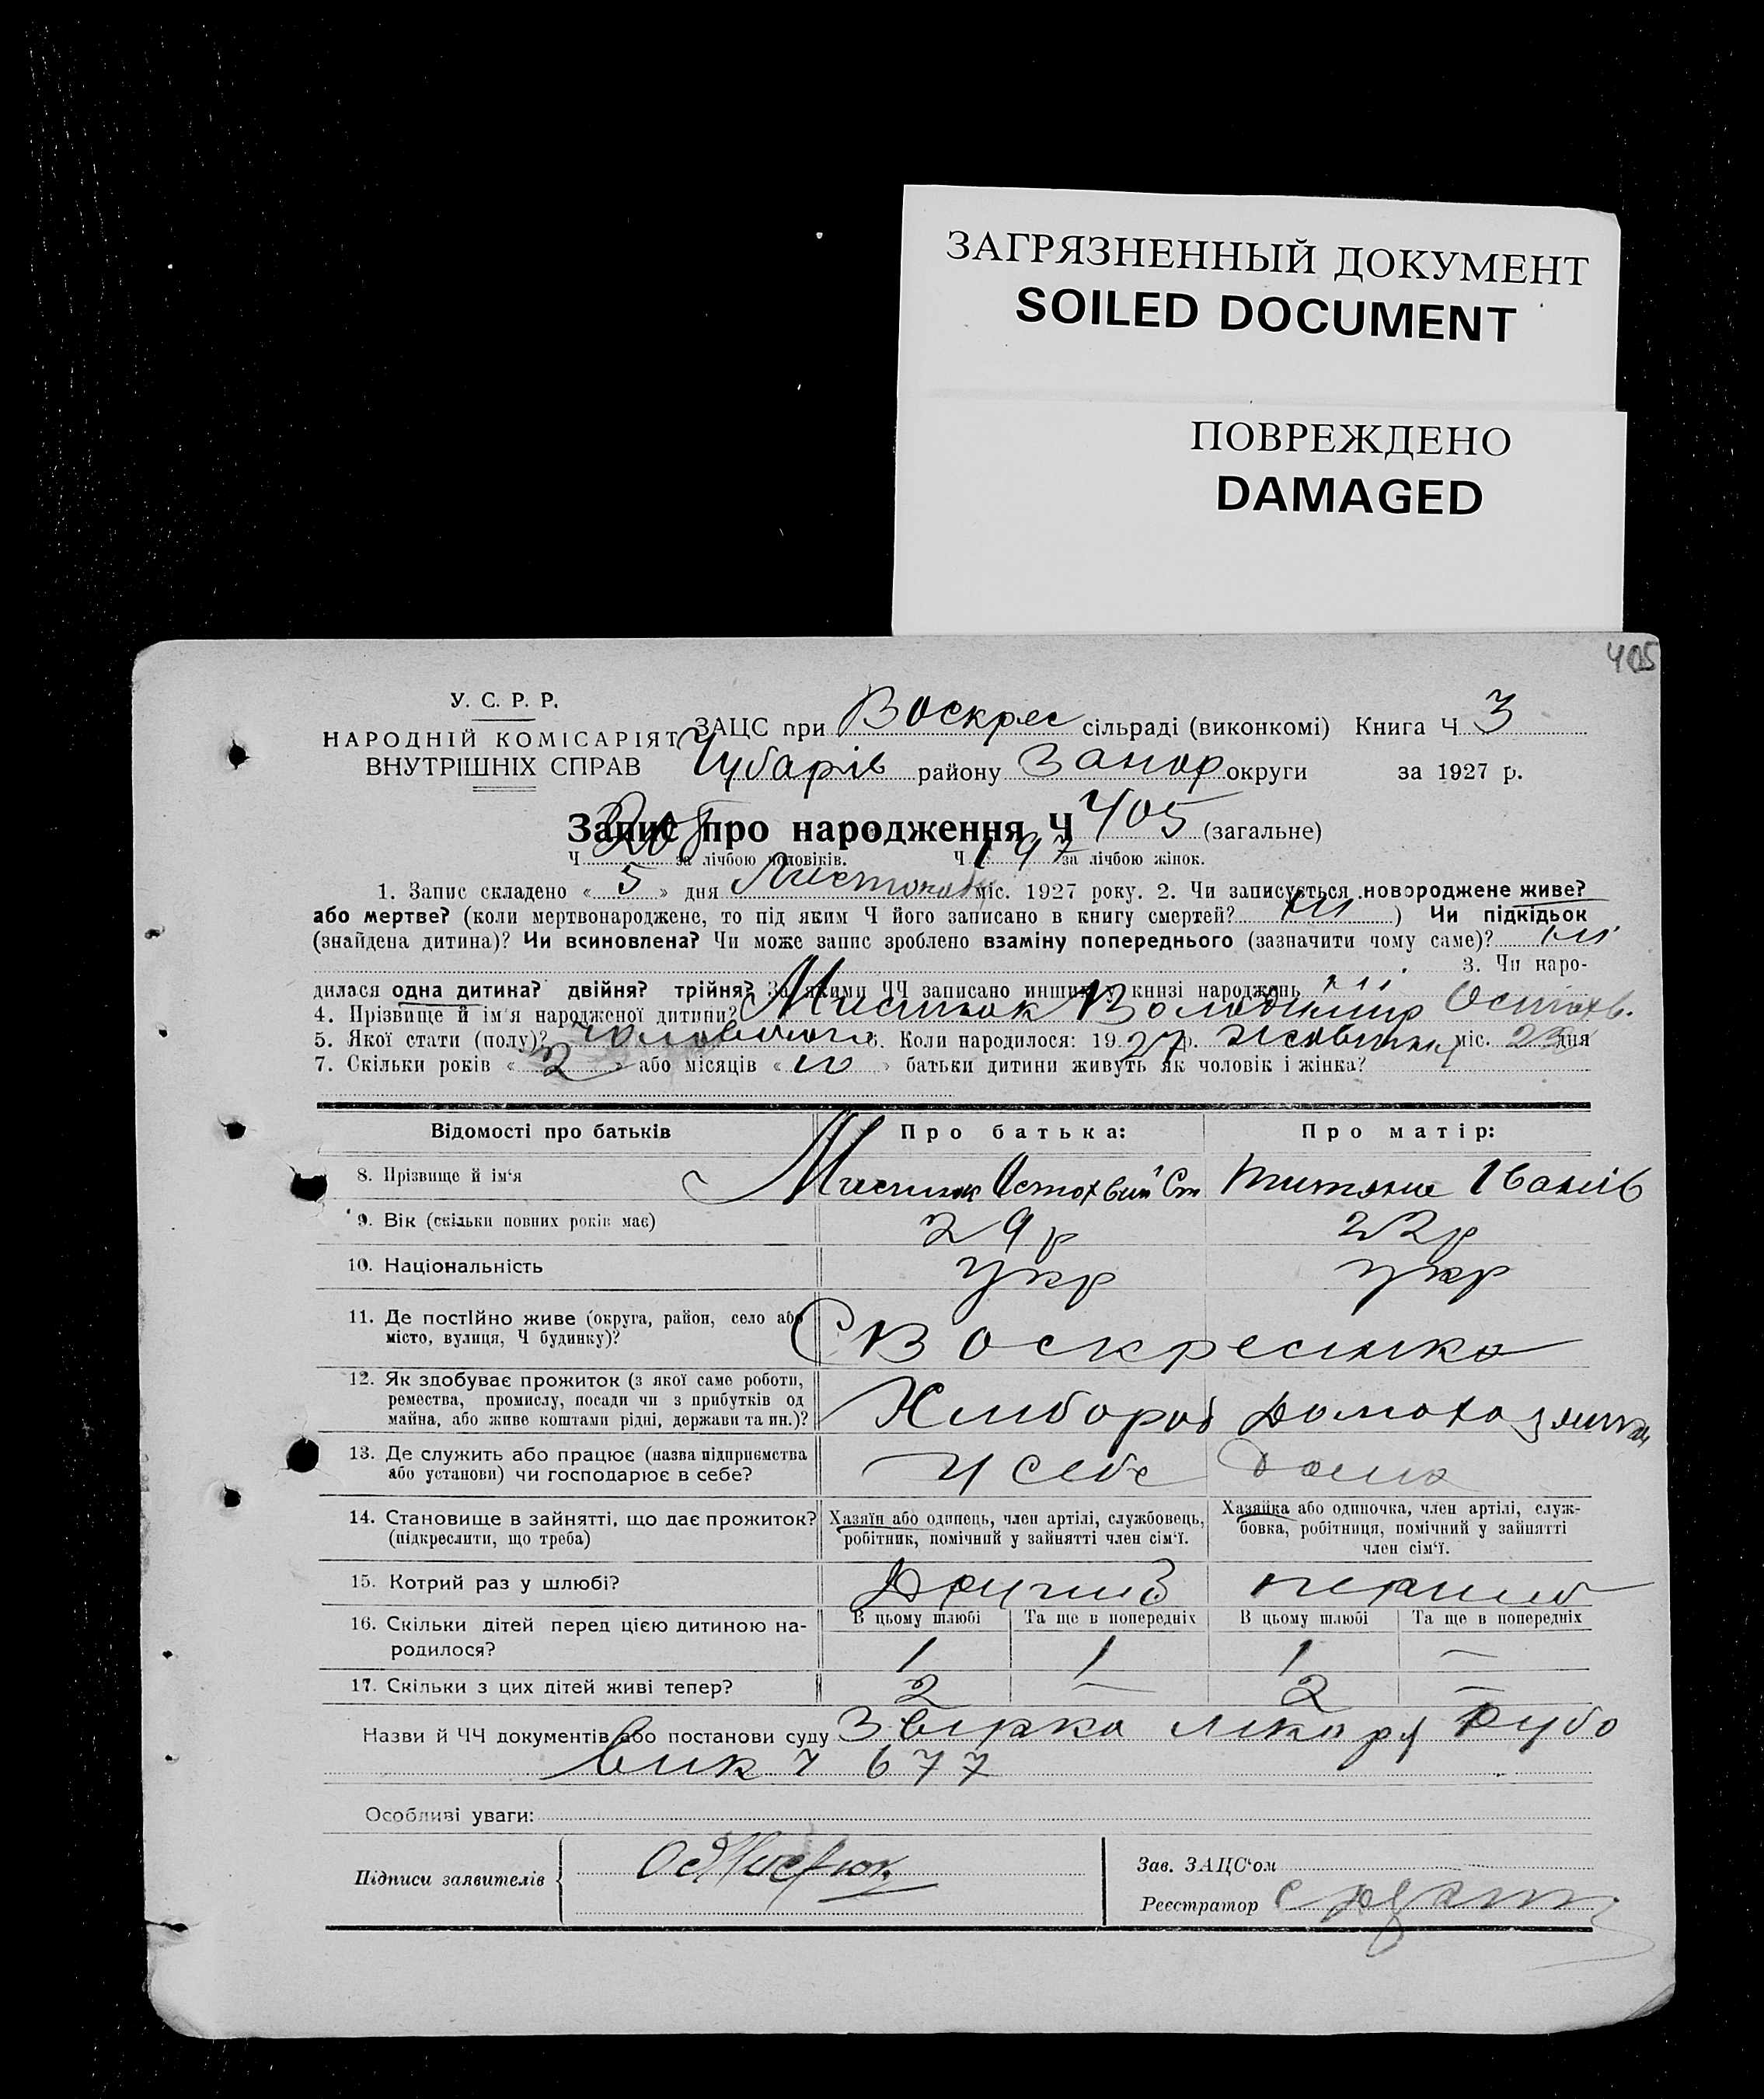 ЗАГРЯЗНЕННЫЙ ДОКУМЕНТ
SOILED DOCUMENT
ПОВРЕЖДЕНО
DAMAGED
405
У. С. Р. Р.
НАРОДНІЙ КОМІСАРІЯТ
ВНУТРІШНІХ СПРАВ
ЗАЦС при Воскрес сільраді (виконкомі) Книга Ч 3
Чубарів району Запор округи за 1927 р.
Запис про народження Ч 405 (загальне)
Ч 208 за лічбою чоловіків. Ч 197 за лічбою жінок.
1. Запис складено « 5 » дня Листопада міс. 1927 року. 2. Чи записується новороджене живе?
або мертве? (коли мертвонароджене, то під яким Ч його записано в книгу смертей? ні ) Чи підкідьок
(знайдена дитина)? Чи всиновлена? Чи може запис зроблено взаміну попереднього (зазначити чому саме)? ні
3. Чи наро-
дилася одна дитина? двійня? трійня? За якими ЧЧ записано инших у книзі народжень ні
4. Прізвище й ім'я народженої дитини? Володимир Остахв.
5. Якої стати (полу)? чоловічого 6. Коли народилося: 1927 р. жовтня міс. 23 дня
7. Скільки років « 2 » або місяців « » батьки дитини живуть як чоловік і жінка?
Відомості про батьків
Про батька:
Про матір:
8. Прізвище й ім'я
Остахвий Ст
Титяна Іванів
9. Вік (скільки повних років має)
29 р
22 р
10. Національність
укр
укр
11. Де постійно живе (округа, район, село або
місто, вулиця, Ч будинку)?
С Воскресинка
12. Як здобуває прожиток (з якої саме роботи,
ремества, промислу, посади чи з прибутків од
майна, або живе коштами рідні, держави та ин.)?
Хлибороб
Домохазяйка
13. Де служить або працює (назва підприємства
або установи) чи господарює в себе?
У себе
дома
14. Становище в зайнятті, що дає прожиток?
(підкреслити, що треба)
Хазяїн або одинець, член артілі, службовець,
робітник, помічний у зайнятті член сім'ї.
Хазяйка або одиночка, член артілі, служ-
бовка, робітниця, помічний у зайнятті
член сім'ї.
15. Котрий раз у шлюбі?
Другий
перший
16. Скільки дітей перед цією дитиною на-
родилося?
В цьому шлюбі
Та ще в попередніх
В цьому шлюбі
Та ще в попередніх
1
1
1
—
17. Скільки з цих дітей живі тепер?
2
—
2
—
Назви й ЧЧ документів або постанови суду Звірка лікаря Рубо
вик Ч 677
Особливі уваги:
Підписи заявителів
Зав. ЗАЦС'ом
Реєстратор